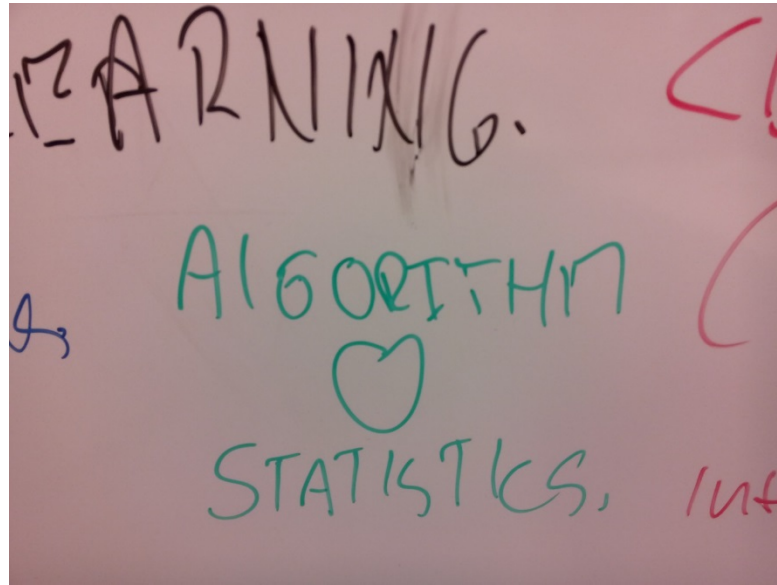 LEARNING.
ALGORITHM
STATISTICS.